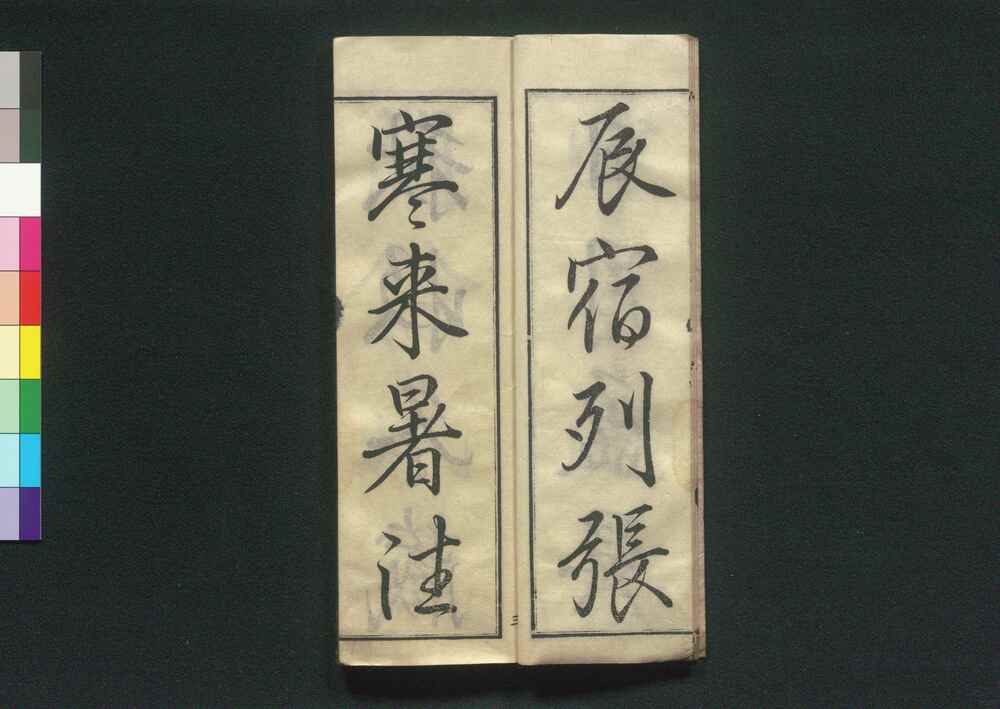 辰宿列張
寒来暑往
三